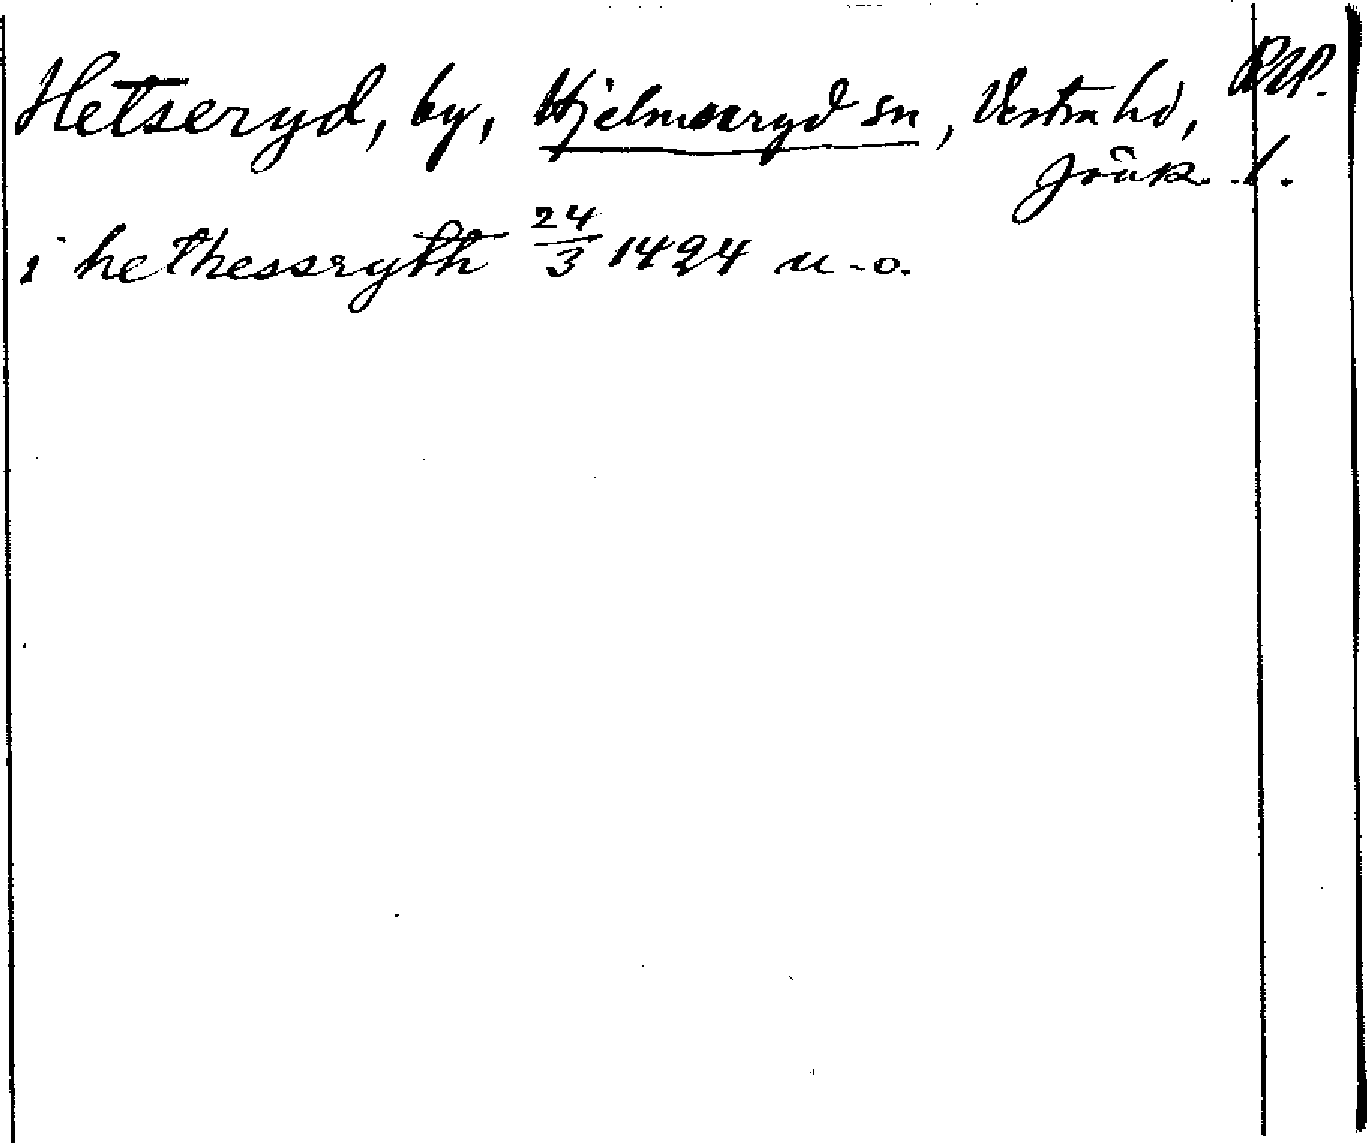 Hetseryd, by, Hjelmseryd sn, Vestra hd, RAP.
Jönk. l.
i hethessryth 24/3 1424 u.o.